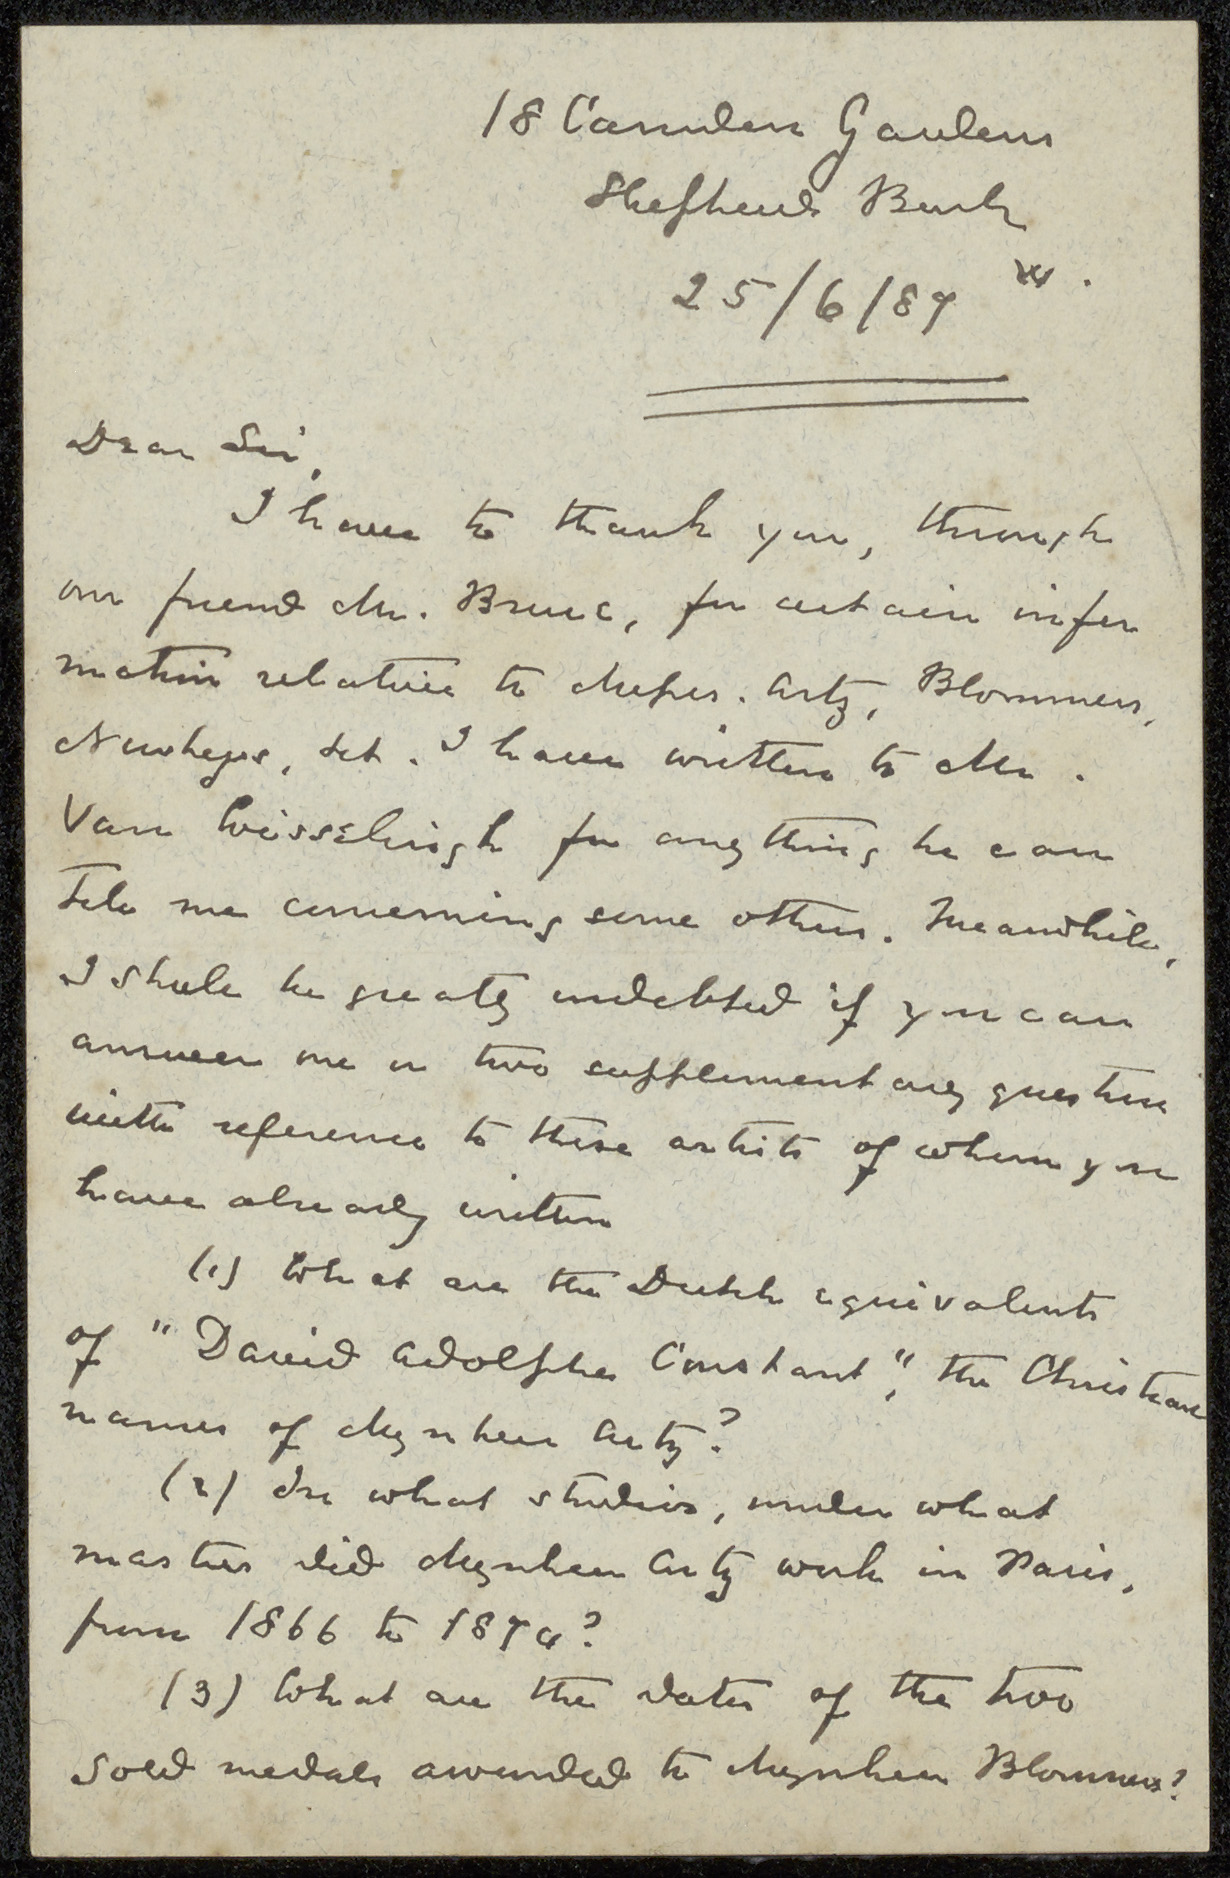 18 Camden Gardens
Shepherds Bush
W.
25/6/87
Dear Sir,
I have to thank you, through
our friend Mr. Bruce, for certain infor
mation relative to Messrs. Artz, Blommers,
Neuhuys, &ct. I have written to Mr.
Van Wisselingh for anything he can
tell me concerning some others. Meanwhile,
I shall be greatly indebted if you can
answer me a two supplementary questions
with reference to these artists of whom you
have already written
(1) What are the Dutch equivalents
of "David Adolphe Constant", the Christian
names of Mynheer Artz?
(2) In what studios, under what
masters did Mynheer Artz work in Paris,
from 1866 to 1874?
(3) What are the dates of the two
gold medals awarded to Mynheer Blommers?